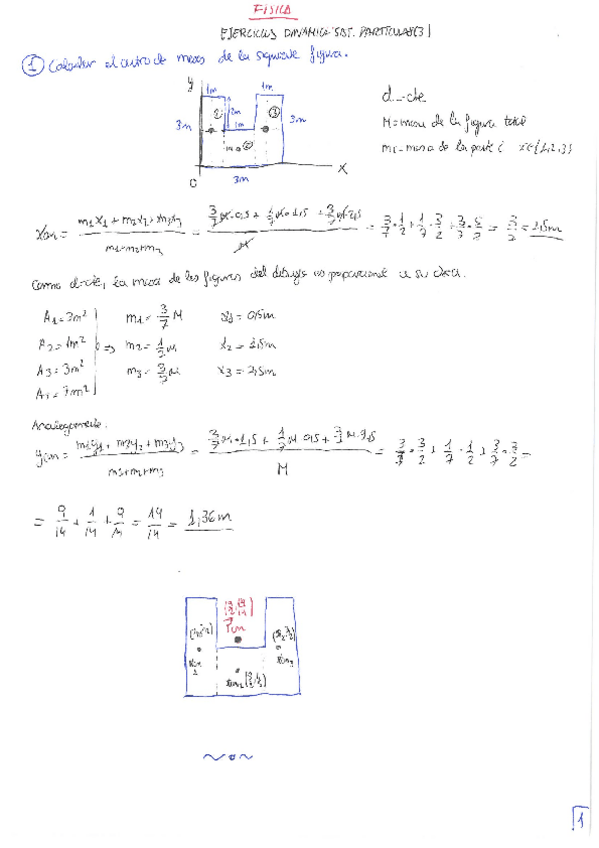 FISICA
EJERCICIOS DINÁMICA SIST. PARTICULAS (3)
① Calcular el centro de masas de la siguiente figura.
y
1m 1m
① 2m ③
3m 1m 3m
②
0 3m X
d=cte
M=masa de la figura total
mi=masa de la parte i i∈{1,2,3}
xcm = m1x1 + m2x2 + m3x3 / m1+m2+m3 = 3/7 M·0,5 + 1/7 M·1,5 + 3/7 M·2,5 / M = 3/7 · 1/2 + 1/7 · 3/2 + 3/7 · 5/2 = 3/2 = 1,5m
Como d=cte, la masa de las figuras del dibujo es proporcional a su área.
A1=3m² m1= 3/7 M x1= 0,5m
A2=1m² => m2= 1/7 M x2= 1,5m
A3=3m² m3= 3/7 M x3= 2,5m
AT=7m²
Analogamente:
ycm = m1y1 + m2y2 + m3y3 / m1+m2+m3 = 3/7 M·1,5 + 1/7 M·0,5 + 3/7 M·1,5 / M = 3/7 · 3/2 + 1/7 · 1/2 + 3/7 · 3/2 =
= 9/14 + 1/14 + 9/14 = 19/14 = 1,36m
1